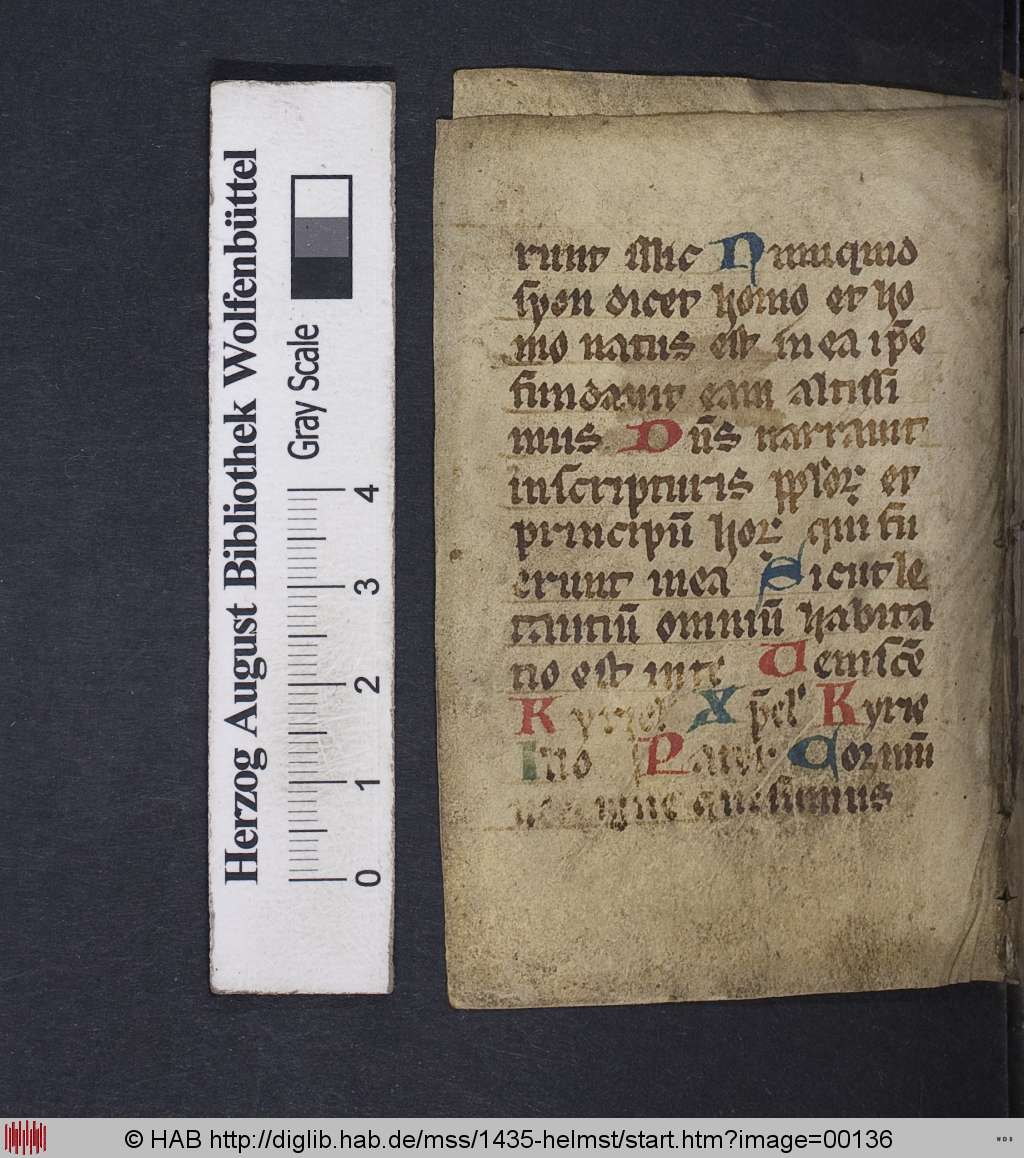 Herzog August Bibliothek Wolfenbüttel
Gray Scale
0 1 2 3 4
runt illic Numquid
syon dicet homo et ho
mo natus est in ea ip̄e
fundauit eam altissi
mus Dn̄s narrauit
in scripturis ppl'oꝝ et
principū hoꝝ qui fu
erunt in ea Sicut le
tantiū omniū habita
no est in te Ueniscē
Kyriel' Xp̄el' Kyrie
Ino Pater Cor nr̄m
igne quesumus
© HAB http://diglib.hab.de/mss/1435-helmst/start.htm?image=00136